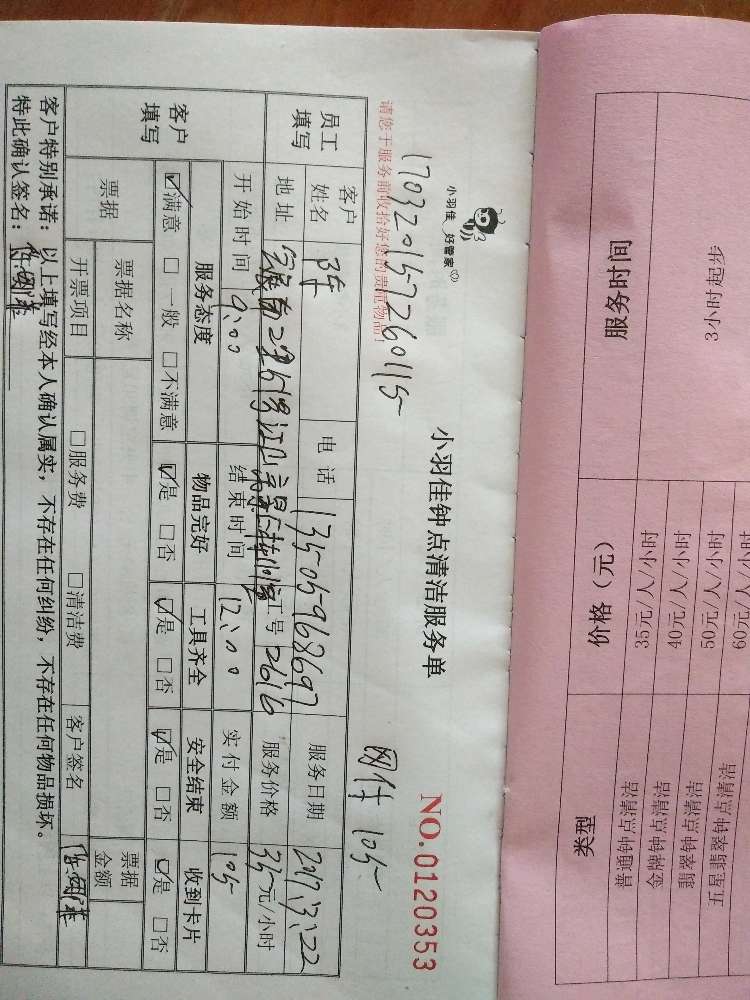 小羽佳 好管家
小羽佳钟点清洁服务单
NO.0120353
170320157260115
网付 105
请您于服务前收拾好您的贵重物品!
员工填写
客户姓名 陈 电话 13505968697 服务日期 2017.3.22
地址 工号 2616 服务价格 35元/小时
开始时间 9:00 结束时间 12:00 实付金额 105
客户填写
服务态度 物品完好 工具齐全 安全结束 收到卡片
☑满意 □一般 □不满意 ☑是 □否 ☑是 □否 ☑是 □否 ☑是 □否
票据 票据名称 票据金额
开票项目 □服务费 □清洁费 客户签名
客户特别承诺：以上填写经本人确认属实，不存在任何纠纷，不存在任何物品损坏。
特此确认签名：
类型 价格（元） 服务时间
普通钟点清洁 35元/人/小时 3小时起步
金牌钟点清洁 40元/人/小时
翡翠钟点清洁 50元/人/小时
五星翡翠钟点清洁 60元/人/小时